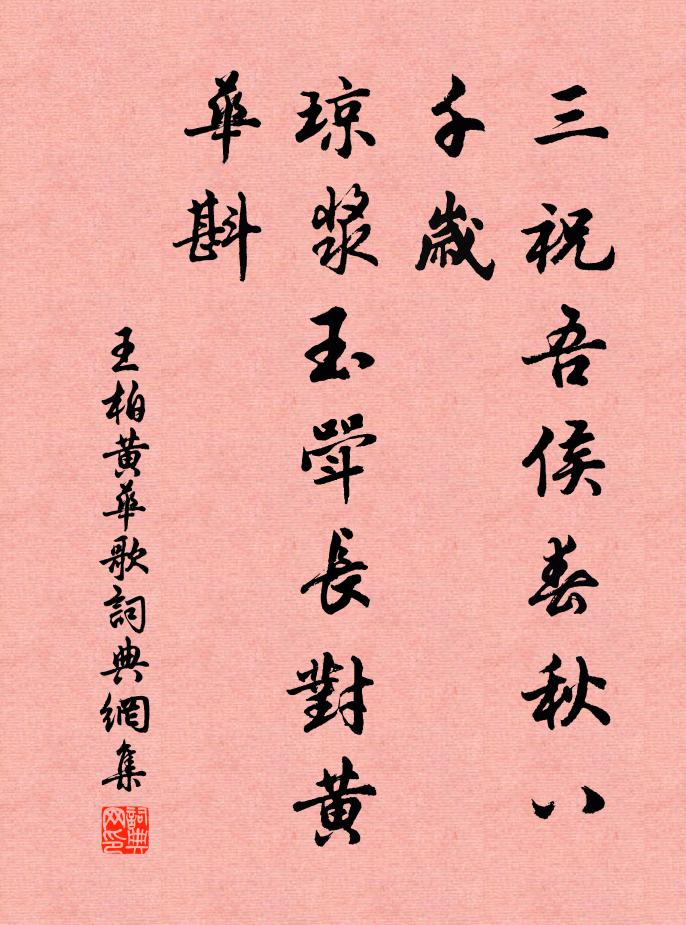 三祝吾侯春秋八
千歲
琼漿玉斝長對黄
華斟
王柏黄華歌詞典網集
詞典网印